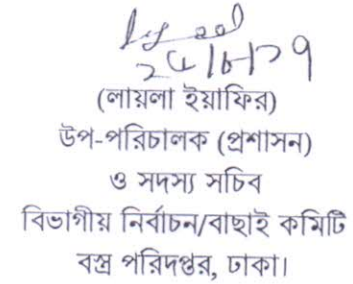 (লায়লা ইয়াফির)
উপ-পরিচালক (প্রশাসন)
ও সদস্য সচিব
বিভাগীয় নির্বাচন/বাছাই কমিটি
বস্ত্র পরিদপ্তর, ঢাকা।